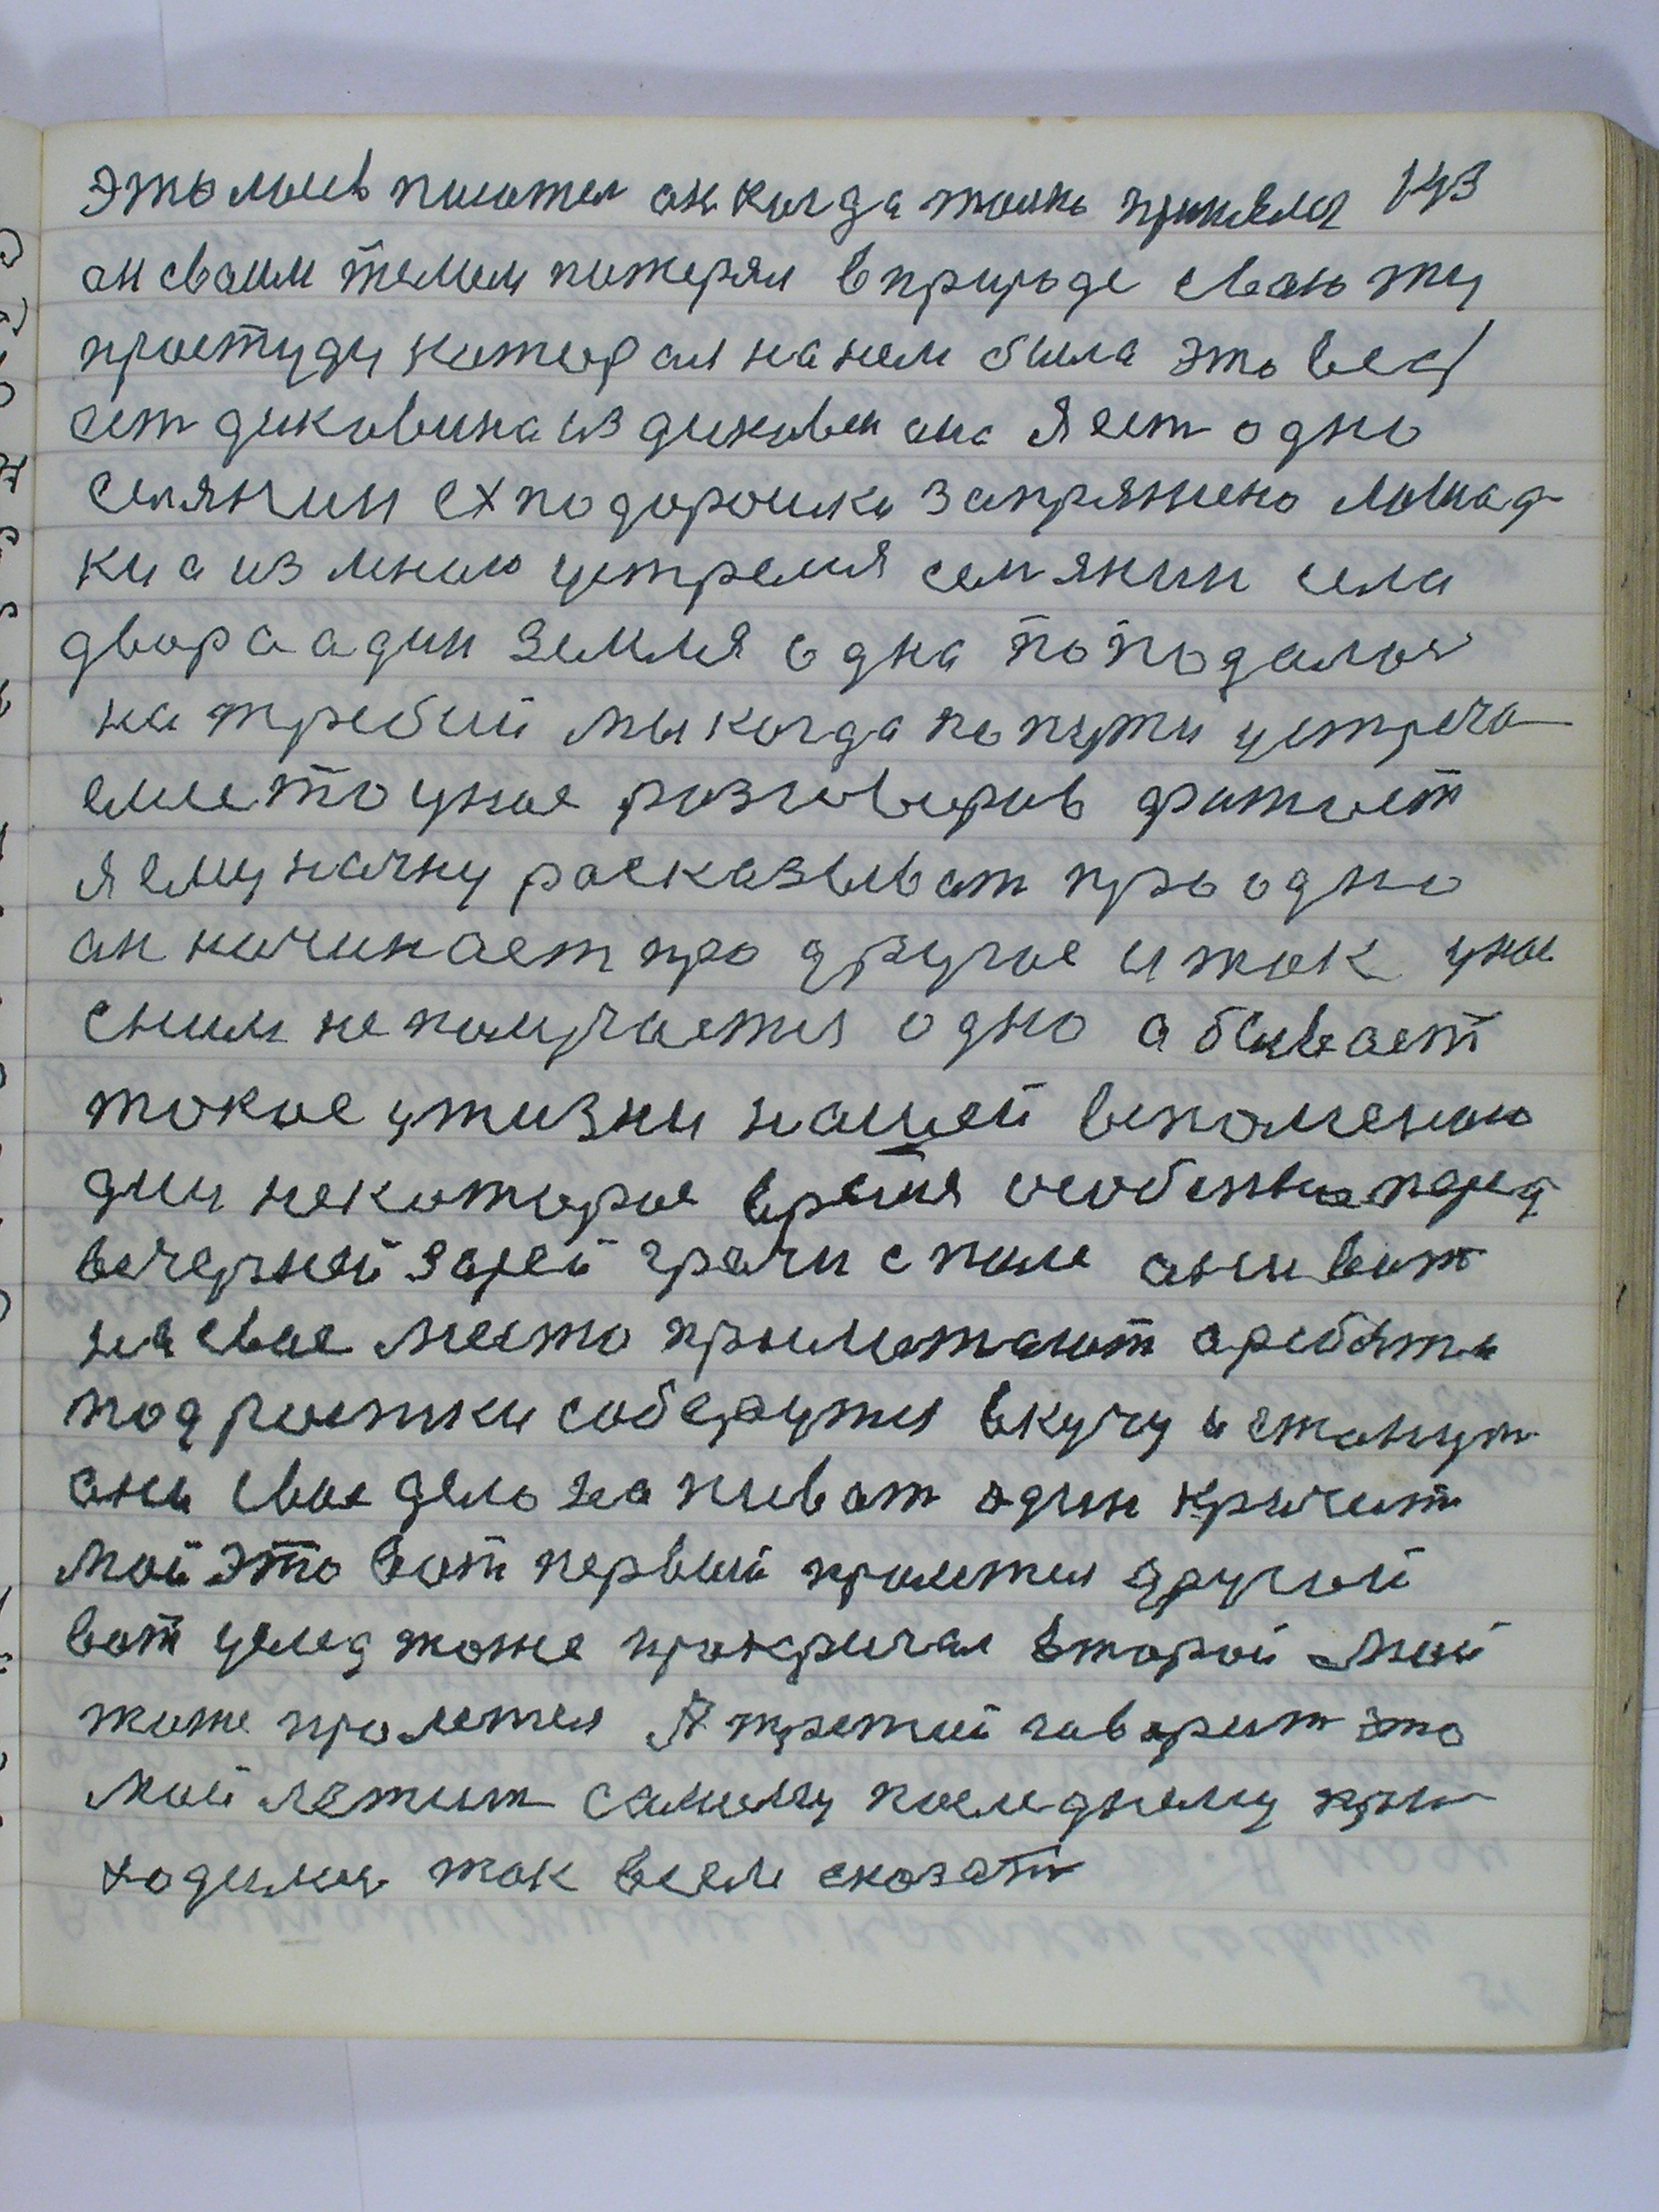 это моев писател он когда толко принялся 143
он своим телом потерял вприроде своюту
простуду которая нанем была это весд
ест диковина из диковин она Я ест одно
селянин ехподорошки запряжено лошад-
ки а из мною устремя селянин села
двора адин земля одна попадался
на требий мы когда по пути устреча-
емся то унас разговоров фатает
я ему начну расказыват про одно
он начинает про другое и так унас
сним не получается одно а бывает
токое ужизни нашей вспоменаю
дни некоторое время особенно перед
вечерней зарей грачи с поле они вот
на свое место прилетают а ребята
подростки соберутся вкучу и станут
они свое дело напиват один кричит
мой это вот первый пролетел другой
вот услед тоже прокричал второй мой
тоже пролетел А третий говорит это
мой летит самому последнему при-
ходился так всем сказать